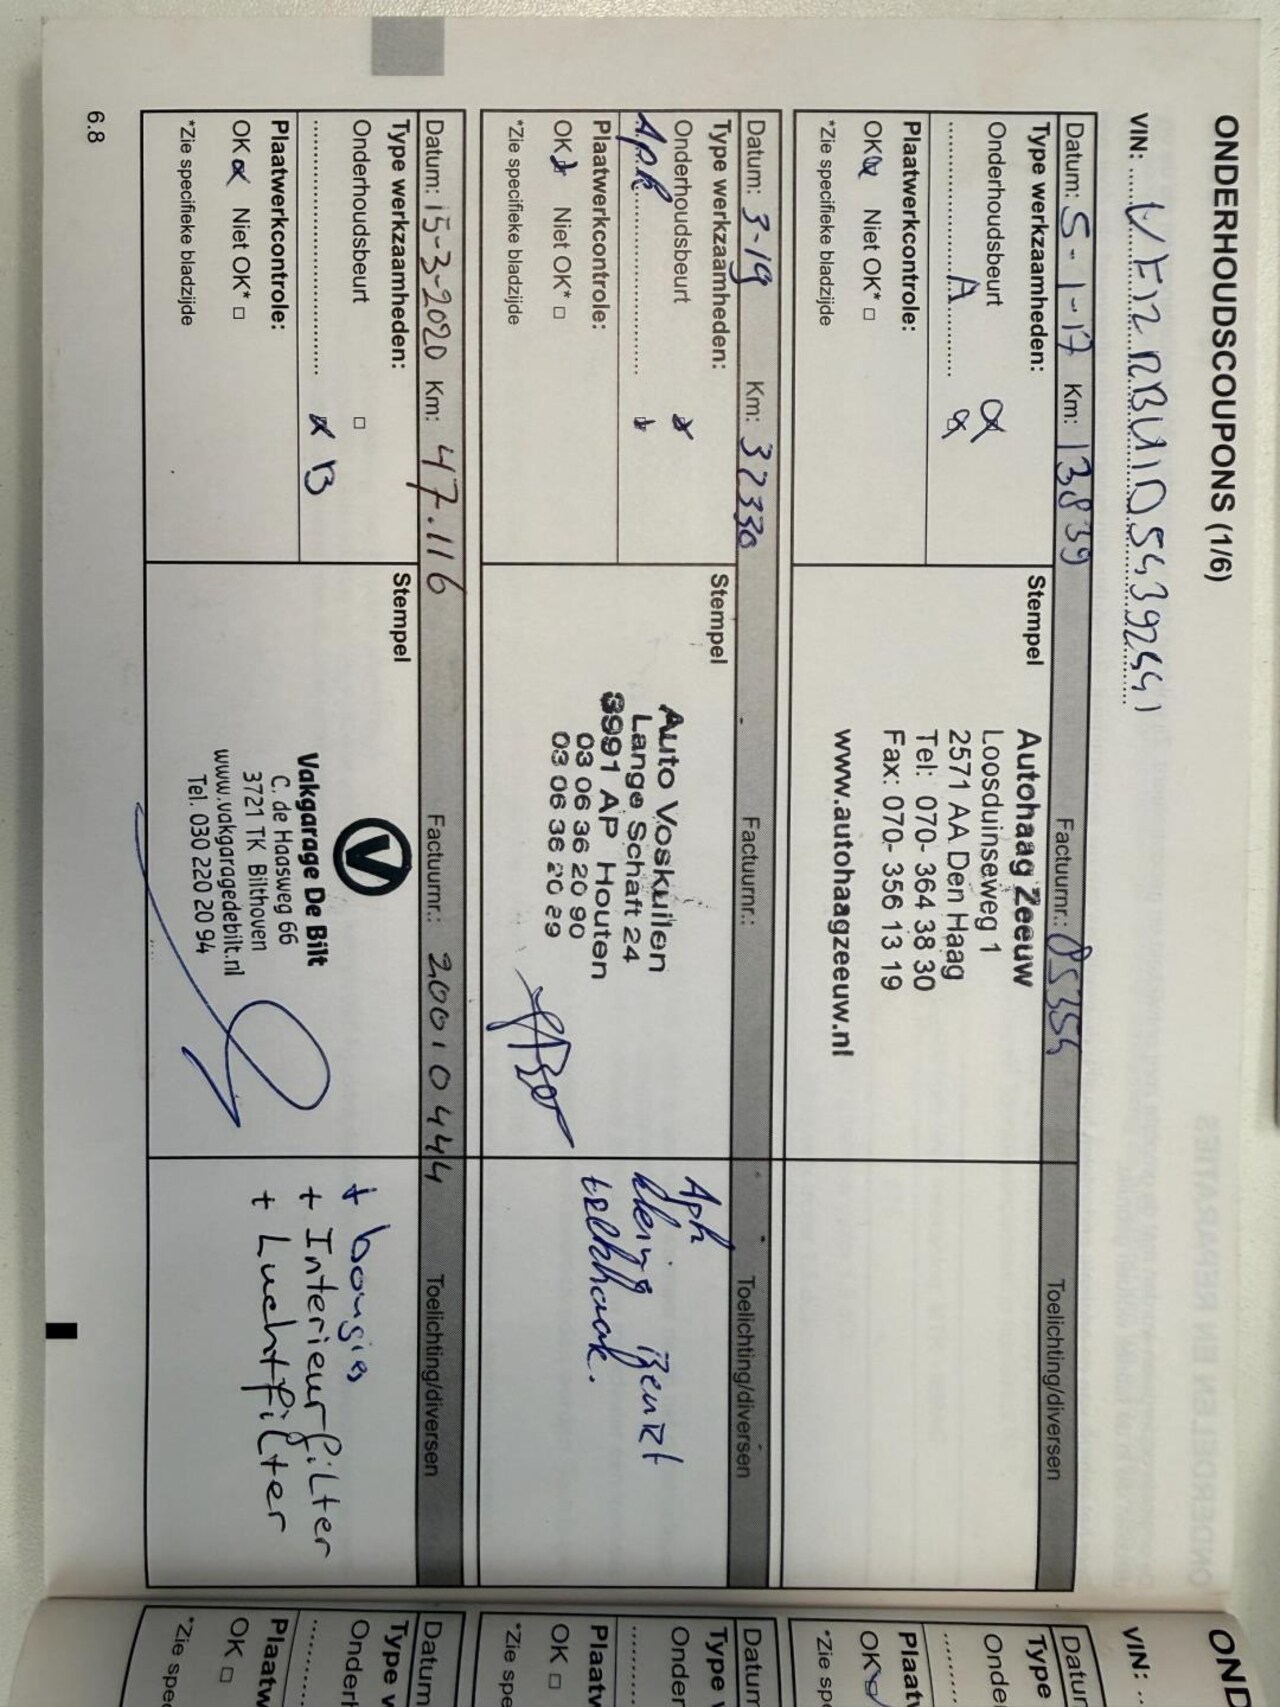 ONDERHOUDSCOUPONS (1/6)
VIN:
Datum: 5-1-17 Km: 13839 Factuurnr.: 85354 Toelichting/diversen
Type werkzaamheden:
Onderhoudsbeurt
A
Plaatwerkcontrole:
OK Niet OK* □
*Zie specifieke bladzijde
Stempel
Autohaag Zeeuw
Loosduinseweg 1
2571 AA Den Haag
Tel: 070- 364 38 30
Fax: 070- 356 13 19
www.autohaagzeeuw.nl
Datum: 3-19 Km: 32330 Factuurnr.: Toelichting/diversen
Type werkzaamheden:
Onderhoudsbeurt
Apk
Plaatwerkcontrole:
OK Niet OK* □
*Zie specifieke bladzijde
Stempel
Auto Voskuilen
Lange Schaft 24
3991 AP Houten
03 06 36 20 90
03 06 36 20 89
Apk
klein Beurt
trekhaak.
Datum: 15-3-2020 Km: 47.116 Factuurnr.: 20010444 Toelichting/diversen
Type werkzaamheden:
Onderhoudsbeurt □
B
Plaatwerkcontrole:
OK Niet OK* □
*Zie specifieke bladzijde
Stempel
V
Vakgarage De Bilt
C. de Haasweg 66
3721 TK Bilthoven
www.vakgaragedebilt.nl
Tel. 030 220 20 94
+ bougies
+ Interieurfilter
+ Luchtfilter
6.8
OND
VIN:
Datum
Type
Onde
Plaatw
OK
*Zie spe
Datum
Type w
Onder
Plaatw
OK □
*Zie spe
Datum
Type w
Onderh
Plaatw
OK □
*Zie spec